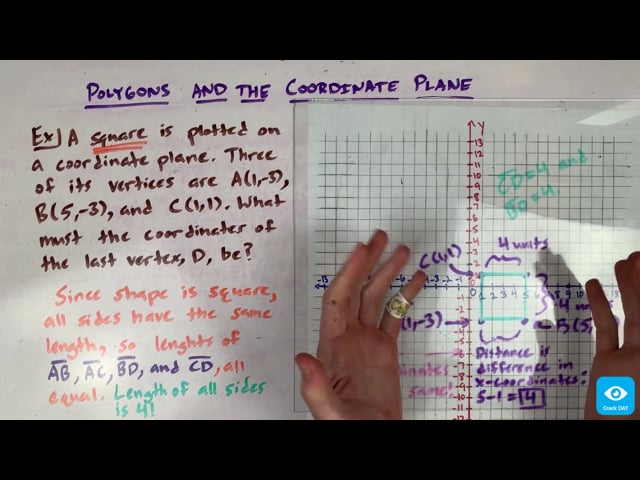 POLYGONS AND THE COORDINATE PLANE
Ex] A square is plotted on
a coordinate plane. Three
of its vertices are A(1,-3),
B(5,-3), and C(1,1). What
must the coordinates of
the last vertex, D, be?
Since shape is square,
all sides have the same
length, so lenghts of
AB, AC, BD, and CD, all
equal. Length of all sides
is 4!
Y
CD=4 and
BD=4.
4 units
C(1,1)
(1,-3)
B(5,
same!
Distance is
difference in
x-coordinates:
5-1=4
Crack OAT